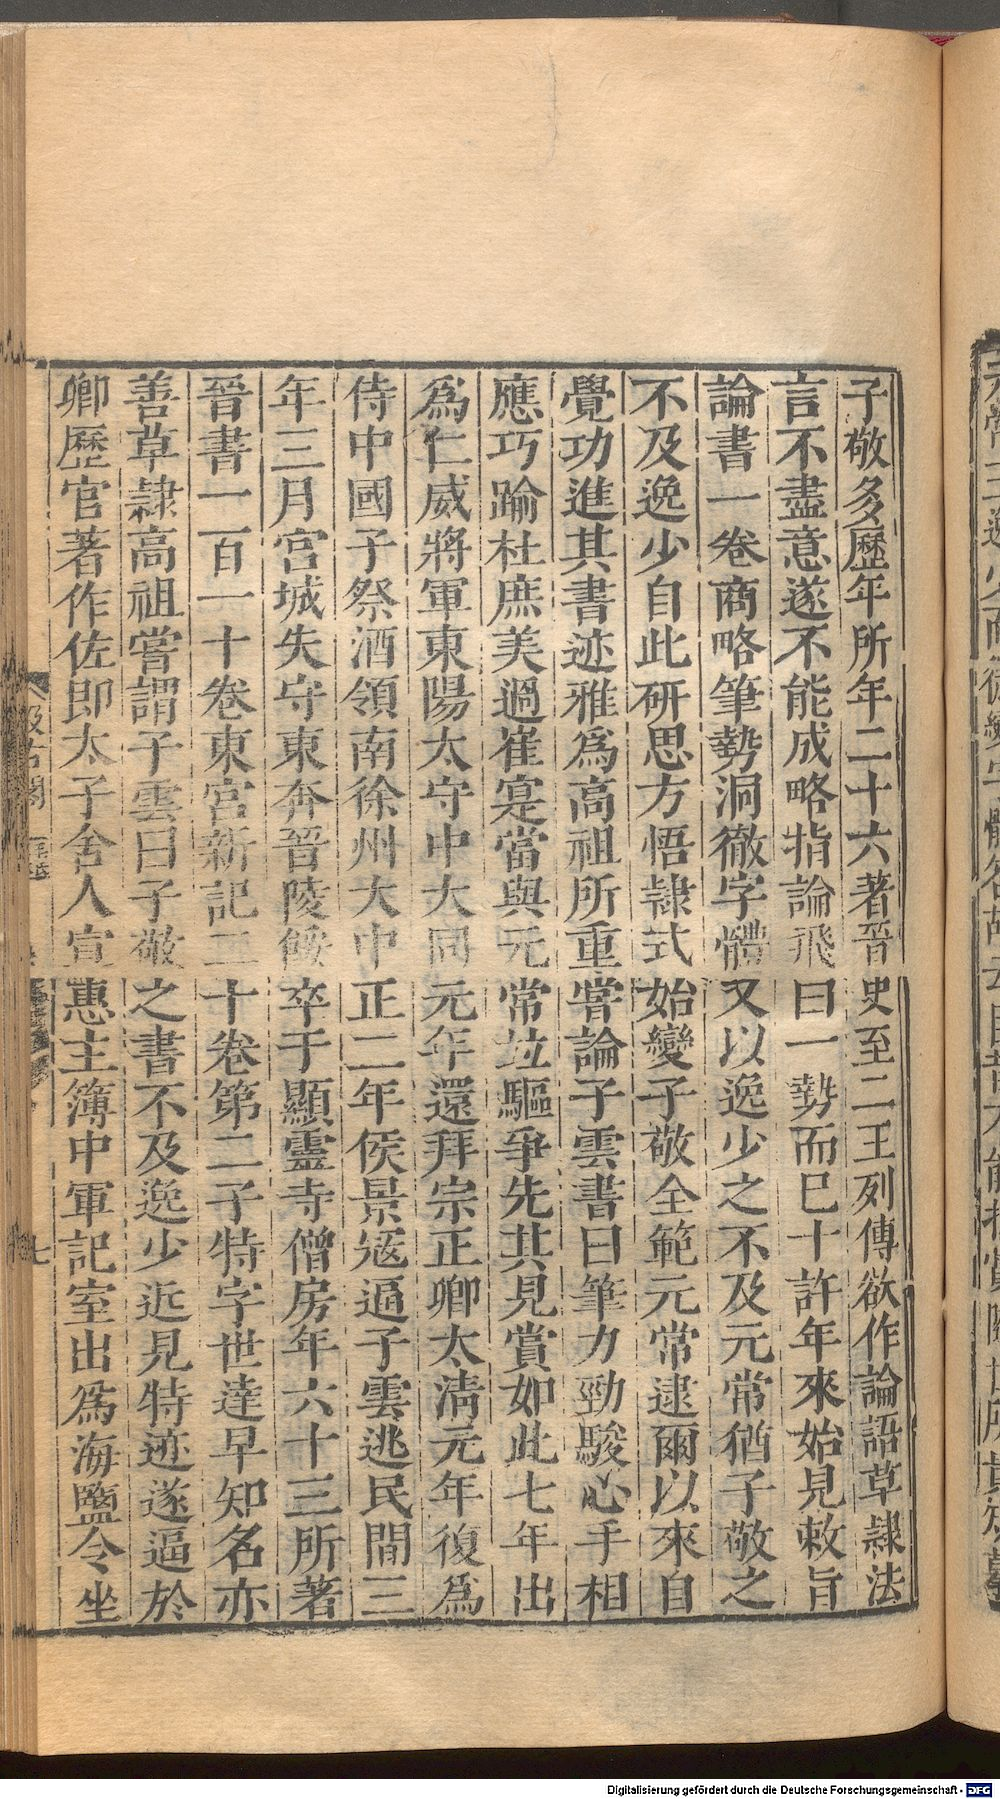 子敬多歷年所年二十六著晉史至二王列傳欲作論語草隸法
言不盡意遂不能成略指論飛白一勢而巳十許年來始見敕旨
論書一卷商略筆勢洞徹字體又以逸少之不及元常猶子敬之
不及逸少自此研思方悟隸式始變子敬全範元常逮爾以來自
覺功進其書迹雅爲高祖所重嘗論子雲書曰筆力勁駿心手相
應巧踰杜庶美過崔寔當與元常竝驅爭先其見賞如此七年出
爲仁威將軍東陽太守中大同元年還拜宗正卿太淸元年復爲
侍中國子祭酒領南徐州大中正二年侯景寇逼子雲逃民間三
年三月宮城失守東奔晉陵餒卒于顯靈寺僧房年六十三所著
晉書一百一十卷東宮新記二十卷第二子特字世達早知名亦
善草隸高祖嘗謂子雲曰子敬之書不及逸少近見特迹遂逼於
卿歷官著作佐郎太子舍人宣惠主簿中軍記室出爲海鹽令坐
七
Digitalisierung gefördert durch die Deutsche Forschungsgemeinschaft - DFG